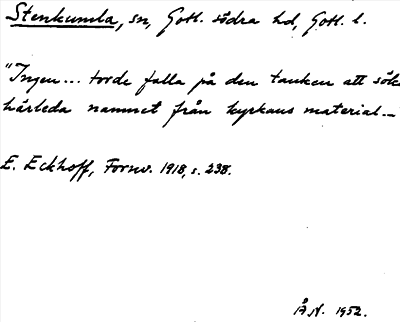 Stenkumla, sn, Gotl. södra hd, Gotl. l.
"Ingen... torde falla på den tanken att söka
härleda namnet från kyrkans material.—"
E. Eckhoff, Fornv. 1918, s. 238.
Å.N. 1952.